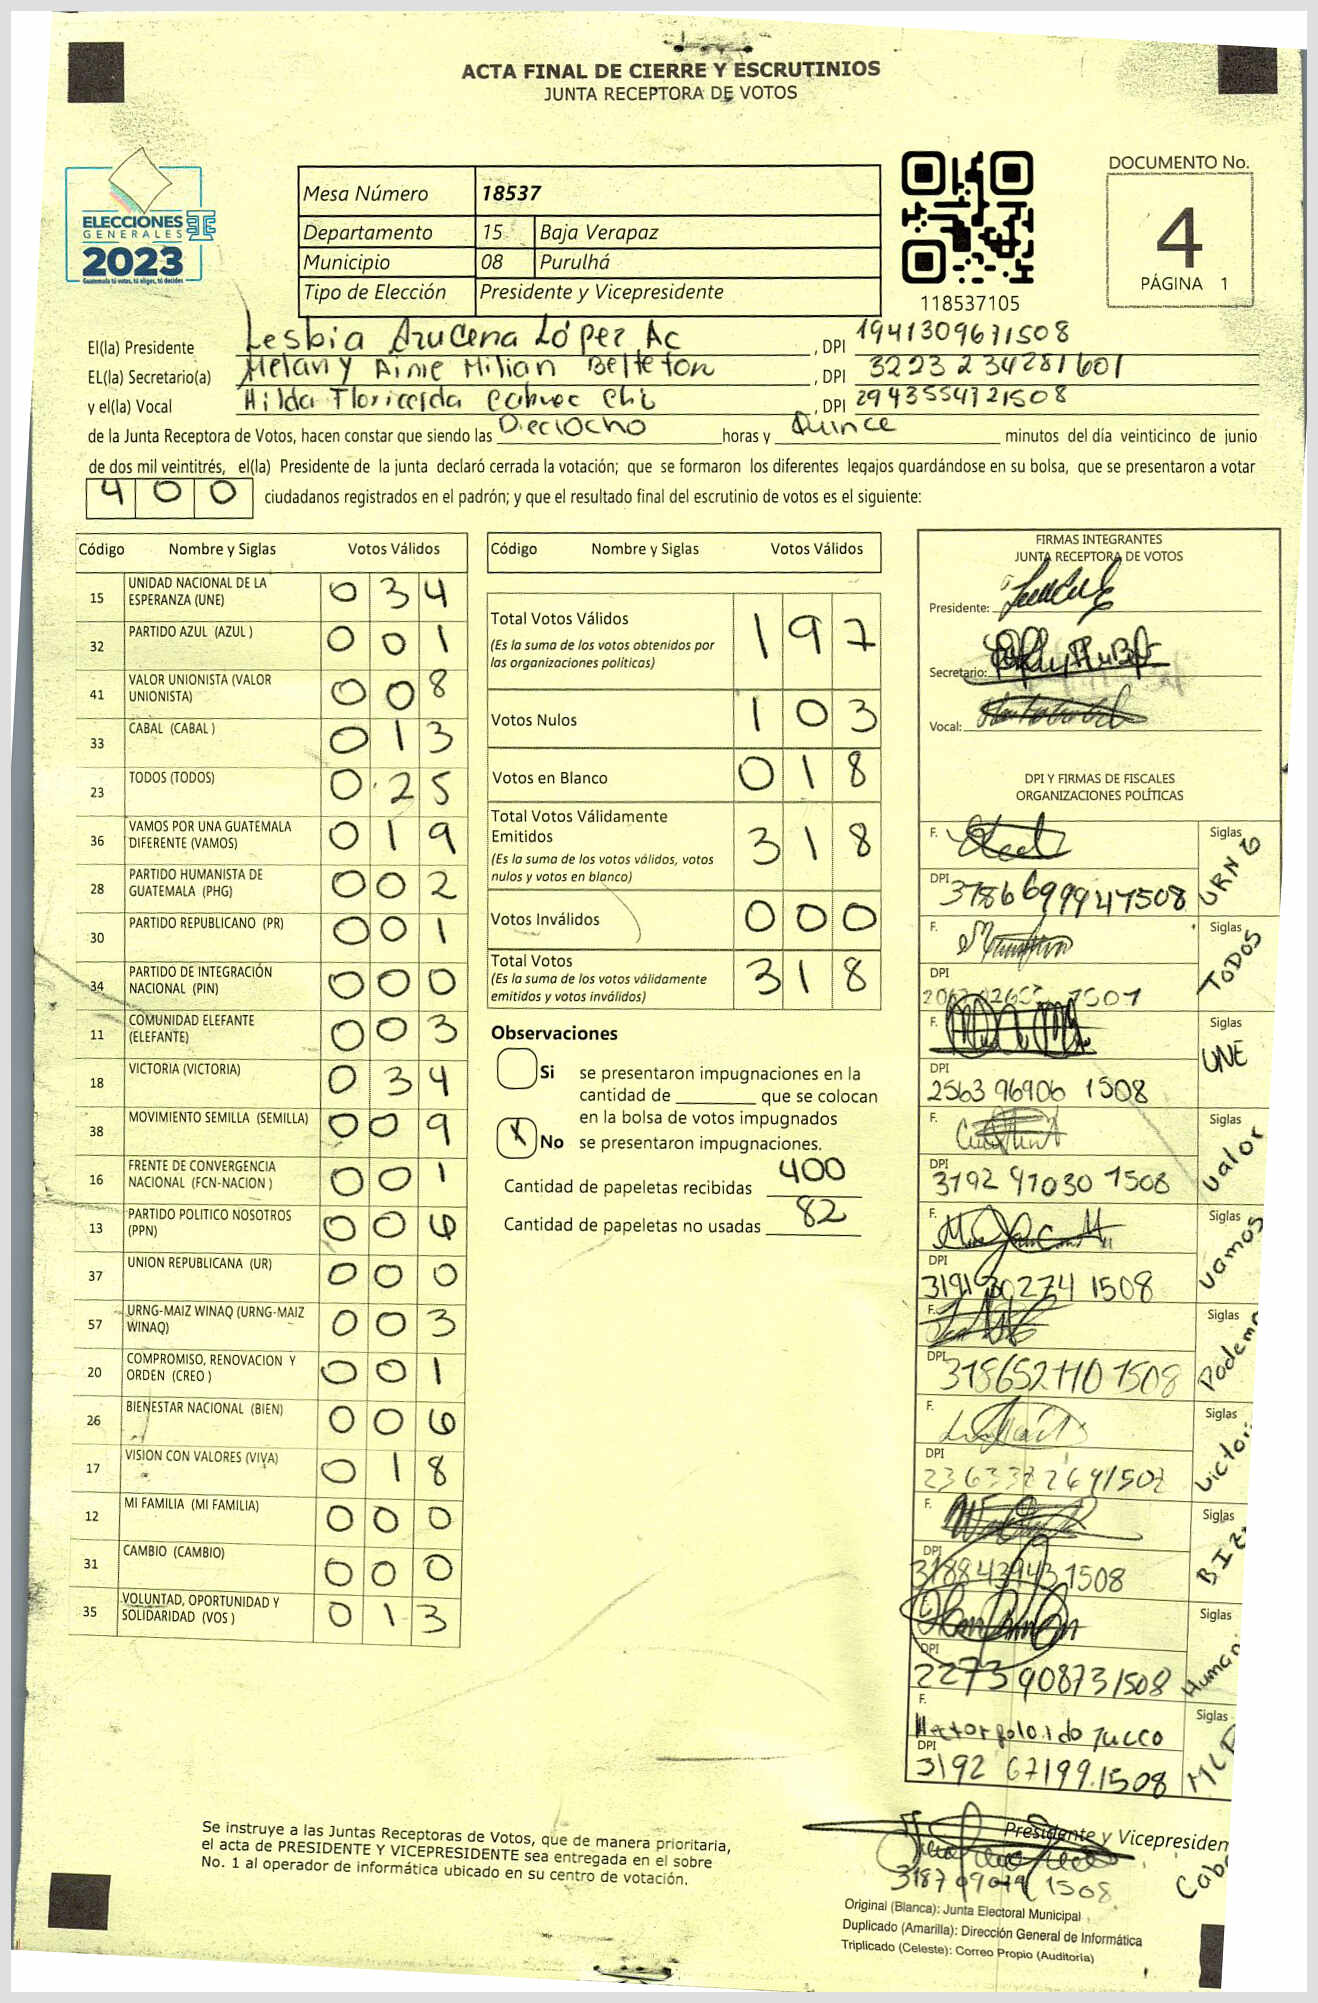 ACTA FINAL DE CIERRE Y ESCRUTINIOS
JUNTA RECEPTORA DE VOTOS
ELECCIONES
GENERALES
2023
Guatemala tú votas, tú eliges, tú decides
Mesa Número 18537
Departamento 15 Baja Verapaz
Municipio 08 Purulhá
Tipo de Elección Presidente y Vicepresidente
118537105
DOCUMENTO No.
4
PÁGINA 1
El(la) Presidente Lesbia Azucena López Ac , DPI 1941309671508
EL(la) Secretario(a) Melany Aime Milian Belteton , DPI 3223234281601
y el(la) Vocal Hilda Floricelda , DPI 2943554721508
de la Junta Receptora de Votos, hacen constar que siendo las Dieciocho horas y Quince minutos del día veinticinco de junio
de dos mil veintitrés, el(la) Presidente de la junta declaró cerrada la votación; que se formaron los diferentes legajos guardándose en su bolsa, que se presentaron a votar
400 ciudadanos registrados en el padrón; y que el resultado final del escrutinio de votos es el siguiente:
Código Nombre y Siglas Votos Válidos
15 UNIDAD NACIONAL DE LA ESPERANZA (UNE) 034
32 PARTIDO AZUL (AZUL ) 001
41 VALOR UNIONISTA (VALOR UNIONISTA) 008
33 CABAL (CABAL ) 013
23 TODOS (TODOS) 025
36 VAMOS POR UNA GUATEMALA DIFERENTE (VAMOS) 019
28 PARTIDO HUMANISTA DE GUATEMALA (PHG) 002
30 PARTIDO REPUBLICANO (PR) 001
34 PARTIDO DE INTEGRACIÓN NACIONAL (PIN) 000
11 COMUNIDAD ELEFANTE (ELEFANTE) 003
18 VICTORIA (VICTORIA) 034
38 MOVIMIENTO SEMILLA (SEMILLA) 009
16 FRENTE DE CONVERGENCIA NACIONAL (FCN-NACION ) 001
13 PARTIDO POLITICO NOSOTROS (PPN) 006
37 UNION REPUBLICANA (UR) 000
57 URNG-MAIZ WINAQ (URNG-MAIZ WINAQ) 003
20 COMPROMISO, RENOVACION Y ORDEN (CREO ) 001
26 BIENESTAR NACIONAL (BIEN) 006
17 VISION CON VALORES (VIVA) 018
12 MI FAMILIA (MI FAMILIA) 000
31 CAMBIO (CAMBIO) 000
35 VOLUNTAD, OPORTUNIDAD Y SOLIDARIDAD (VOS ) 013
Código Nombre y Siglas Votos Válidos
Total Votos Válidos 197
(Es la suma de los votos obtenidos por
las organizaciones políticas)
Votos Nulos 103
Votos en Blanco 018
Total Votos Válidamente
Emitidos 318
(Es la suma de los votos válidos, votos
nulos y votos en blanco)
Votos Inválidos 000
Total Votos 318
(Es la suma de los votos válidamente
emitidos y votos inválidos)
Observaciones
Si se presentaron impugnaciones en la
cantidad de ________ que se colocan
en la bolsa de votos impugnados
X No se presentaron impugnaciones.
Cantidad de papeletas recibidas 400
Cantidad de papeletas no usadas 82
FIRMAS INTEGRANTES
JUNTA RECEPTORA DE VOTOS
Presidente:
Secretario:
Vocal:
DPI Y FIRMAS DE FISCALES
ORGANIZACIONES POLÍTICAS
F. Siglas URNG
DPI 3786699947508
F. Siglas TODOS
DPI
F. Siglas UNE
DPI 2563 96906 1508
F. Siglas Valor
DPI 3192 41030 1508
F. Siglas Vamos
DPI 1508
F. Siglas Podemo
DPI 1508
F. Siglas Victori
DPI
F. Siglas
DPI 3188439431508
Siglas Human
DPI 2273908731508
F. Siglas
DPI 3192 67199.1508
Presidente y Vicepresiden
1508
Se instruye a las Juntas Receptoras de Votos, que de manera prioritaria,
el acta de PRESIDENTE Y VICEPRESIDENTE sea entregada en el sobre
No. 1 al operador de informática ubicado en su centro de votación.
Original (Blanca): Junta Electoral Municipal
Duplicado (Amarilla): Dirección General de Informática
Triplicado (Celeste): Correo Propio (Auditoría)